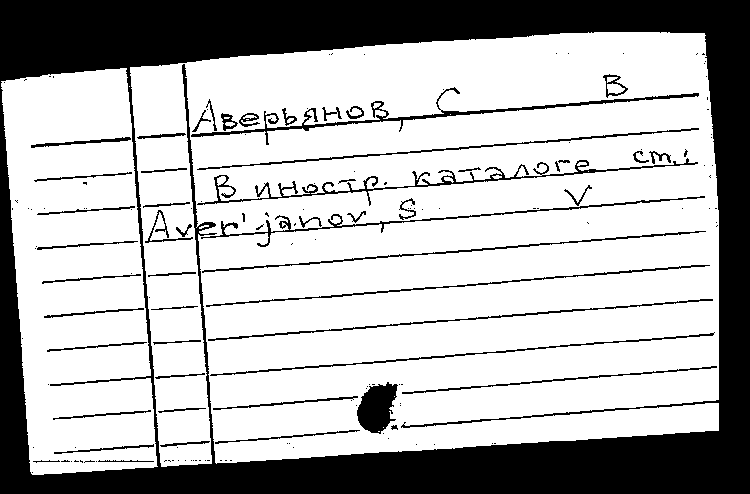 Аверьянов, С В
В иностр. каталоге ст.:
Aver'janov, S V